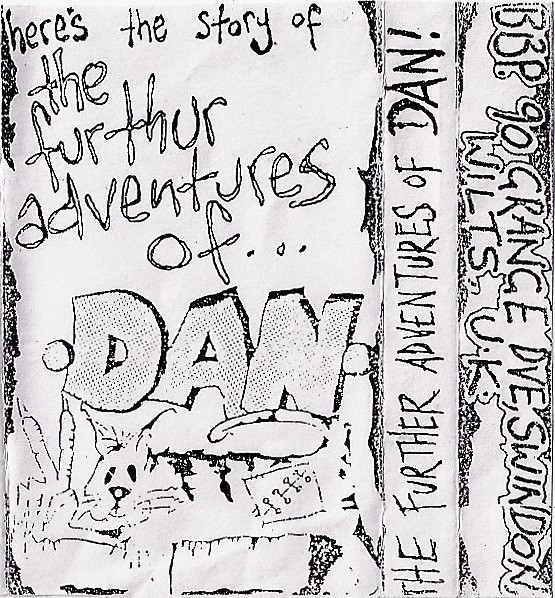 here's the story of
the
furthur
adventures
of...
DAN
THE FURTHER ADVENTURES OF DAN!
BBP. 90 GRANGE DVE SWINDON
WILTS. U.K.